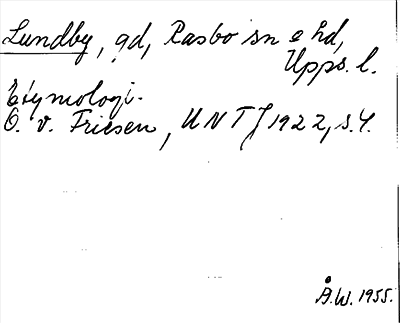 Lundby, gd, Rasbo sn o hd,
Upps. l.
Etymologi.
O. v. Friesen, UNT 1922, s. 4.
Å.W. 1955.